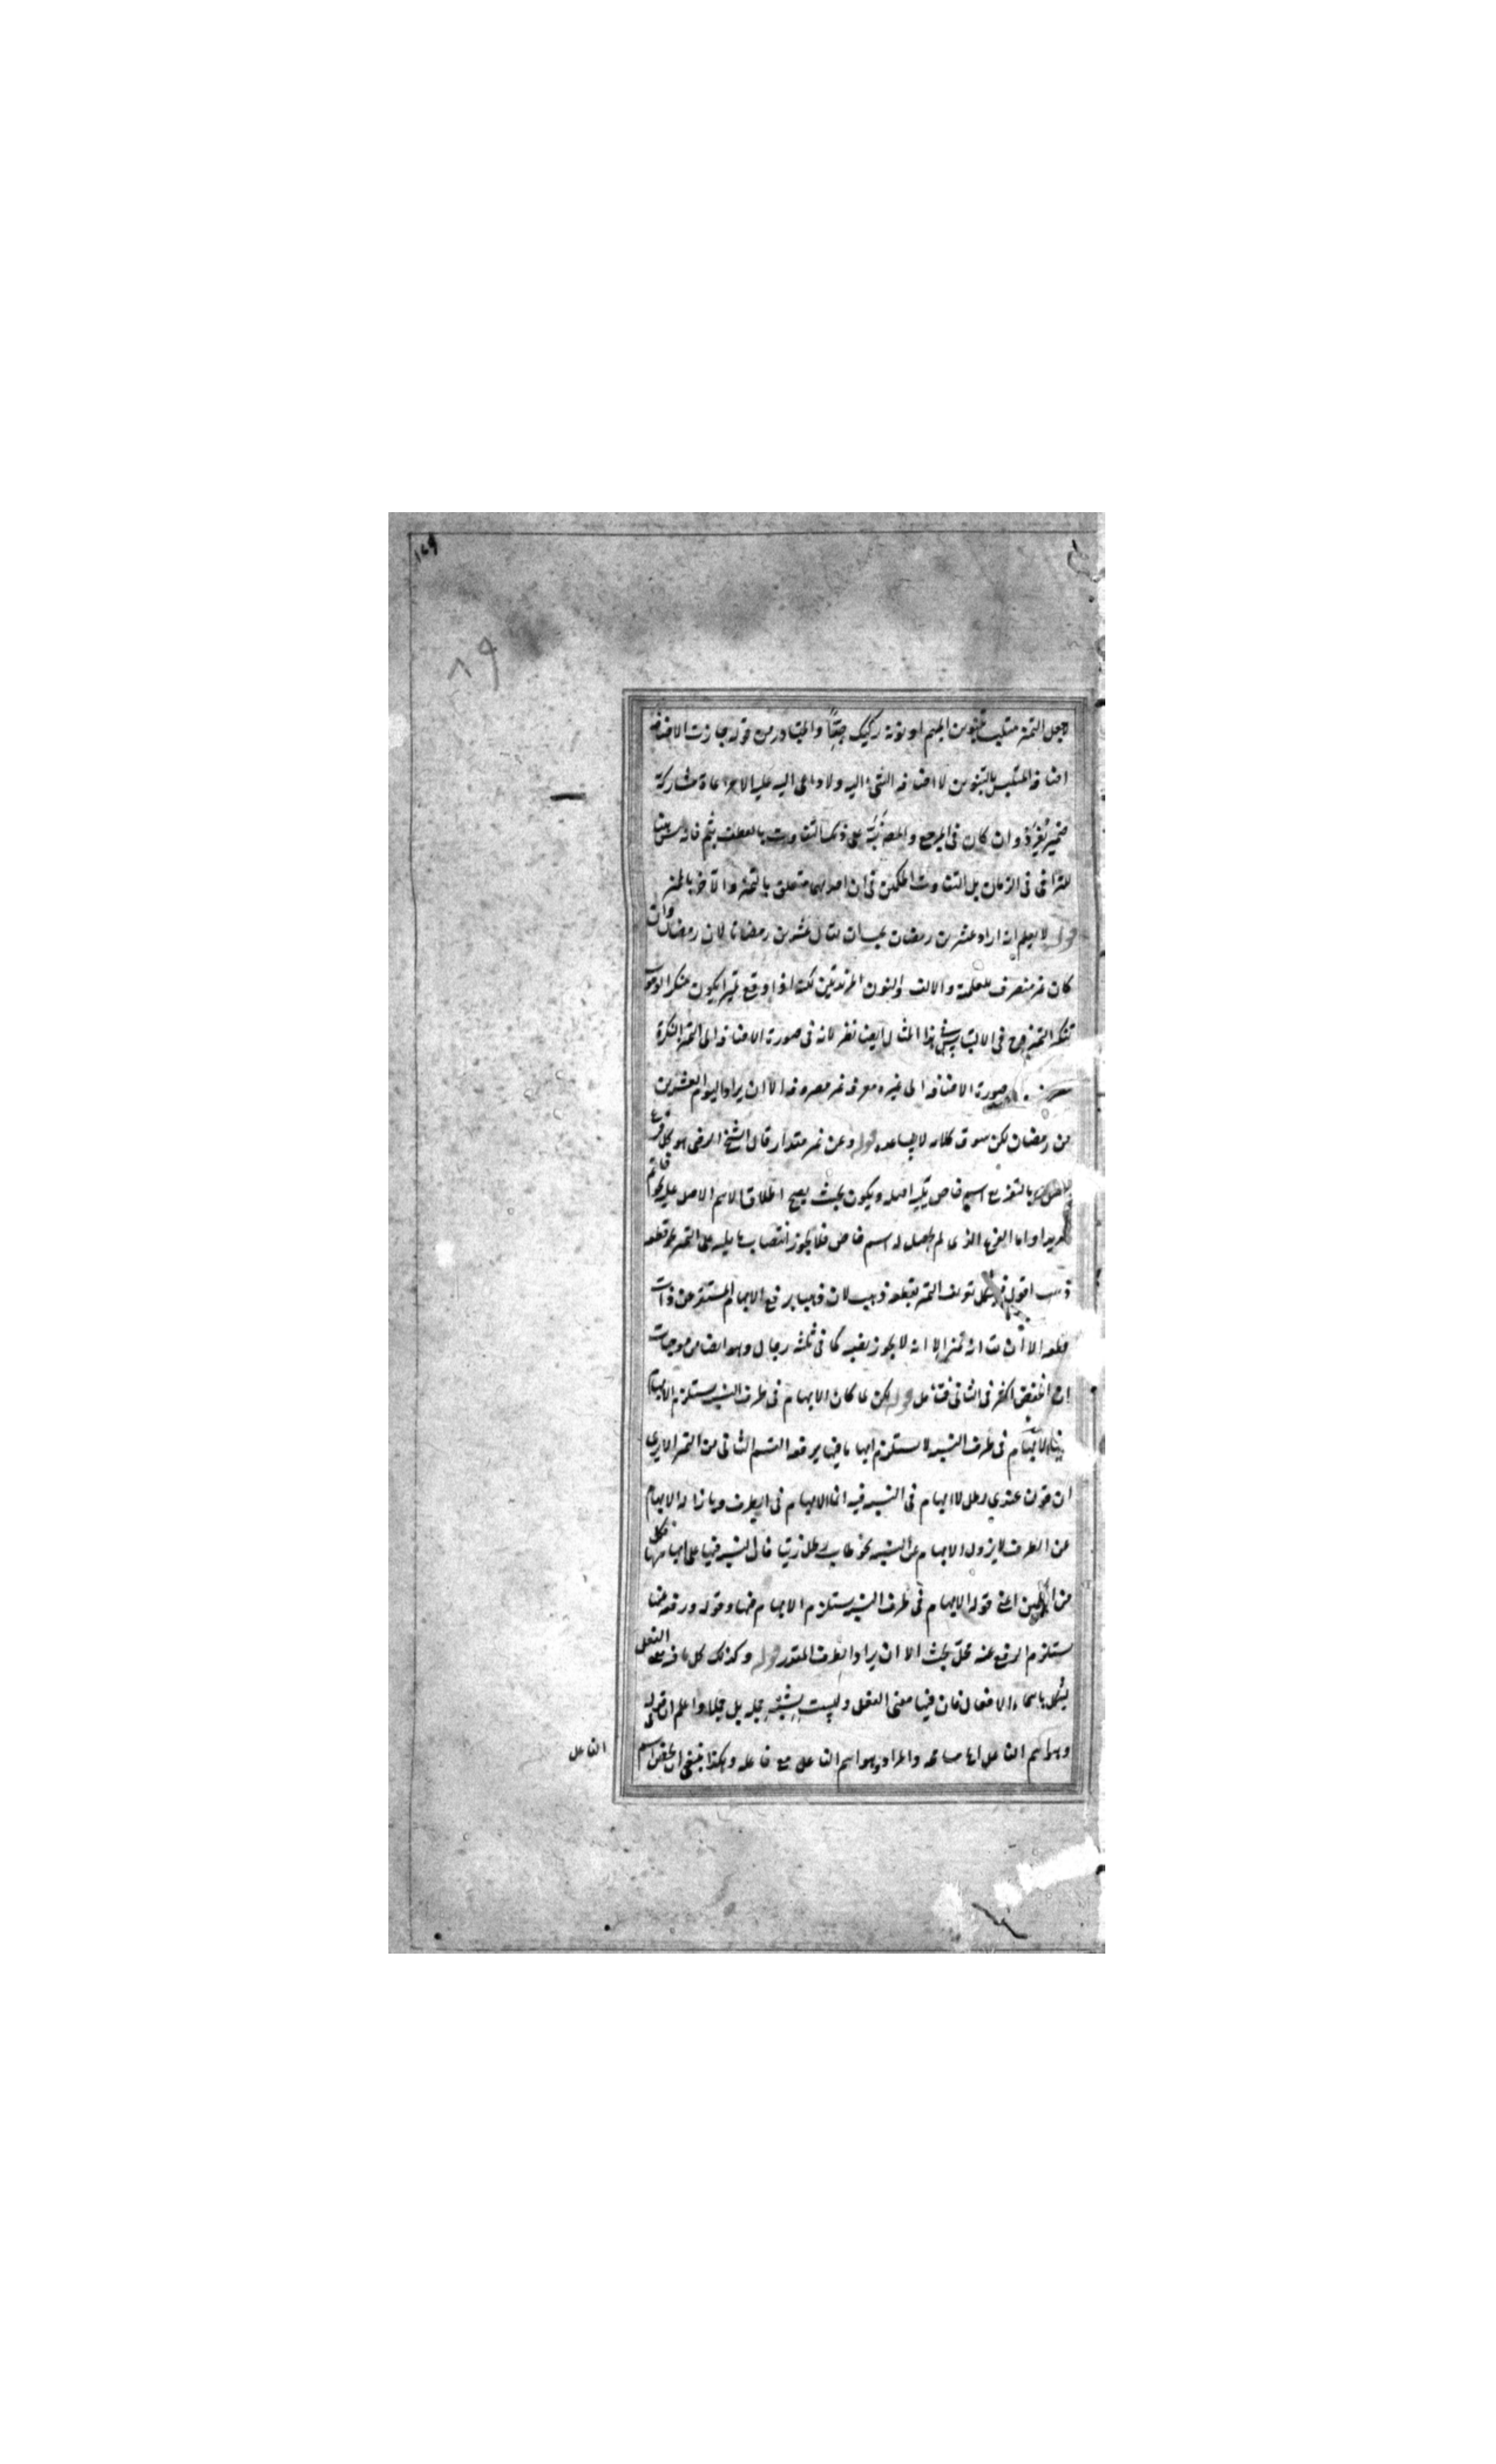 ١٤٩
٨٩
لاجل التميز متلبسا بتنوين المبهم او نونه ركيك جدا والمتبادر من قوله جازت الاضافة
اضافة المتلبس بالتنوين لا اضافة الشئ اليه ولا داعى اليه عليه الا مراعاة مشاركة
ضمير يفرد وان كان فى المرجع والتفاوت بالعطف بثم فانه ليس هنا
للتراخى فى الزمان بل التفاوت الممكن فى ان احدهما متعلق بالتميز والآخر بالمميز
قوله لا يعلم انه اراد عشرين رمضان يجب ان يقال عشرين رمضانا لان رمضان وان
كان غير منصرف للعلمية والالف والنون المزيدتين لكنه اذا وقع تميزا يكون منكرا لوجوب
تنكير التميز وح فى الالتباس فى هذا المثال ايضا نظر لانه فى صورة الاضافة الى التميز النكرة
صورة الاضافة الى غيره معرفة غير مصروفة الا ان يراد اليوم العشرين
من رمضان لكن سوق كلامه لا يساعده قوله وعن غير مقدار قال الشيخ الرضى هو كل فرع
بالتفريع اسم خاص يليه اصله ويكون بحيث يصح اطلاق الاسم الاصل عليه نحو خاتم
حديدا واما الفرع الذى لم يحصل له اسم خاص فلا يجوز انتصاب ما يليه على التميز نحو قطعة
ذهب اقول يشكل تعريف التميز بقطعة ذهب لان ذهبا يرفع الابهام المستقر عن ذات
قطعة الا انه لا يجوز نصبه كما فى ثلثة رجال وهو ايضا من موجبات
الخفض اكثر فى الثانى فتأمل قوله لكن لما كان الابهام فى طرف النسبة يستلزم الابهام
فيها الابهام فى طرف النسبة لا يستلزم ابهاما فيها يرفعه القسم الثانى من التميز الا يرى
ان قولك عندى رطل لا ابهام فى النسبة فيه انما الابهام فى الطرف وبازالة الابهام
عن الطرف لا يزول الابهام عن النسبة نحو طاب رطل زيتا فان النسبة فيها على ابهامها فكل
من الحكمين اعنى قوله الابهام فى طرف النسبة يستلزم الابهام فيها وقوله ورفعه عنها
يستلزم الرفع عنه محل بحث الا ان يراد الطرف المقدر قوله وكذلك كل ما فيه معنى الفعل
يشكل باسماء الافعال فان فيها معنى الفعل وليست بشبه جملة بل جملا واعلم ان قوله
وهو اسم الفاعل اما مسامحة والمراد وهو اسم الفاعل مع فاعله وهكذا ينبغى ان يخص اسم
الفاعل